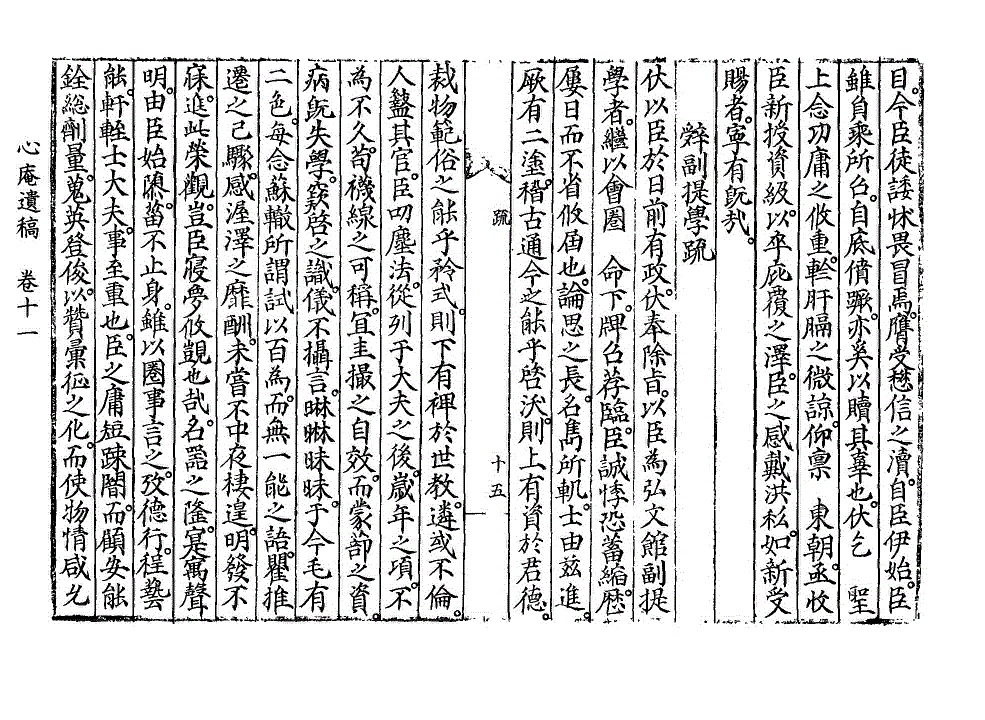 目。今臣徒諉怵畏冒焉。膺受愆信之瀆。自臣伊始。臣
雖自乘所召。自底僨蹶。亦奚以贖其辜也。伏乞 聖
上念功庸之攸重。軫肝膈之微諒。仰稟 東朝。亟收
臣新授資級。以卒庇覆之澤。臣之感戴洪私。如新受
賜者。寧有旣哉。
辭副提學疏
伏以臣於日前有政。伏奉除旨。以臣爲弘文館副提
學者。繼以會圈 命下。牌召荐臨。臣誠悸恐蓄縮。歷
屢日而不省攸屆也。論思之長。名雋所軏。士由玆進。
厥有二塗。稽古通今之能乎啓沃。則上有資於君德。
裁物範俗之能乎矜式。則下有裨於世敎。遴或不倫。
人盭其官。臣叨塵法。從列于大夫之後。歲年之項。不
爲不久。苟襪線之可稱。宜圭撮之自效。而蒙蔀之資。
病旣失學。窾啓之識。儀不攝言。啉啉昧昧。于今毛有
二色。每念蘇轍所謂試以百爲。而無一能之語。瞿推
遷之已驟。感渥澤之靡酬。未嘗不中夜棲遑。明發不
寐。進此榮觀。豈臣寢夢攸覬也哉。名器之隆。寔寓聲
明。由臣始隳。菑不止身。雖以圈事言之。攷德行。程藝
能。軒輊士大夫。事至重也。臣之庸短疎闇。而顧安能
銓總劑量。蒐英登俊。以贊彙征之化。而使物情咸允
疏
十五
心庵遺稿 卷十一